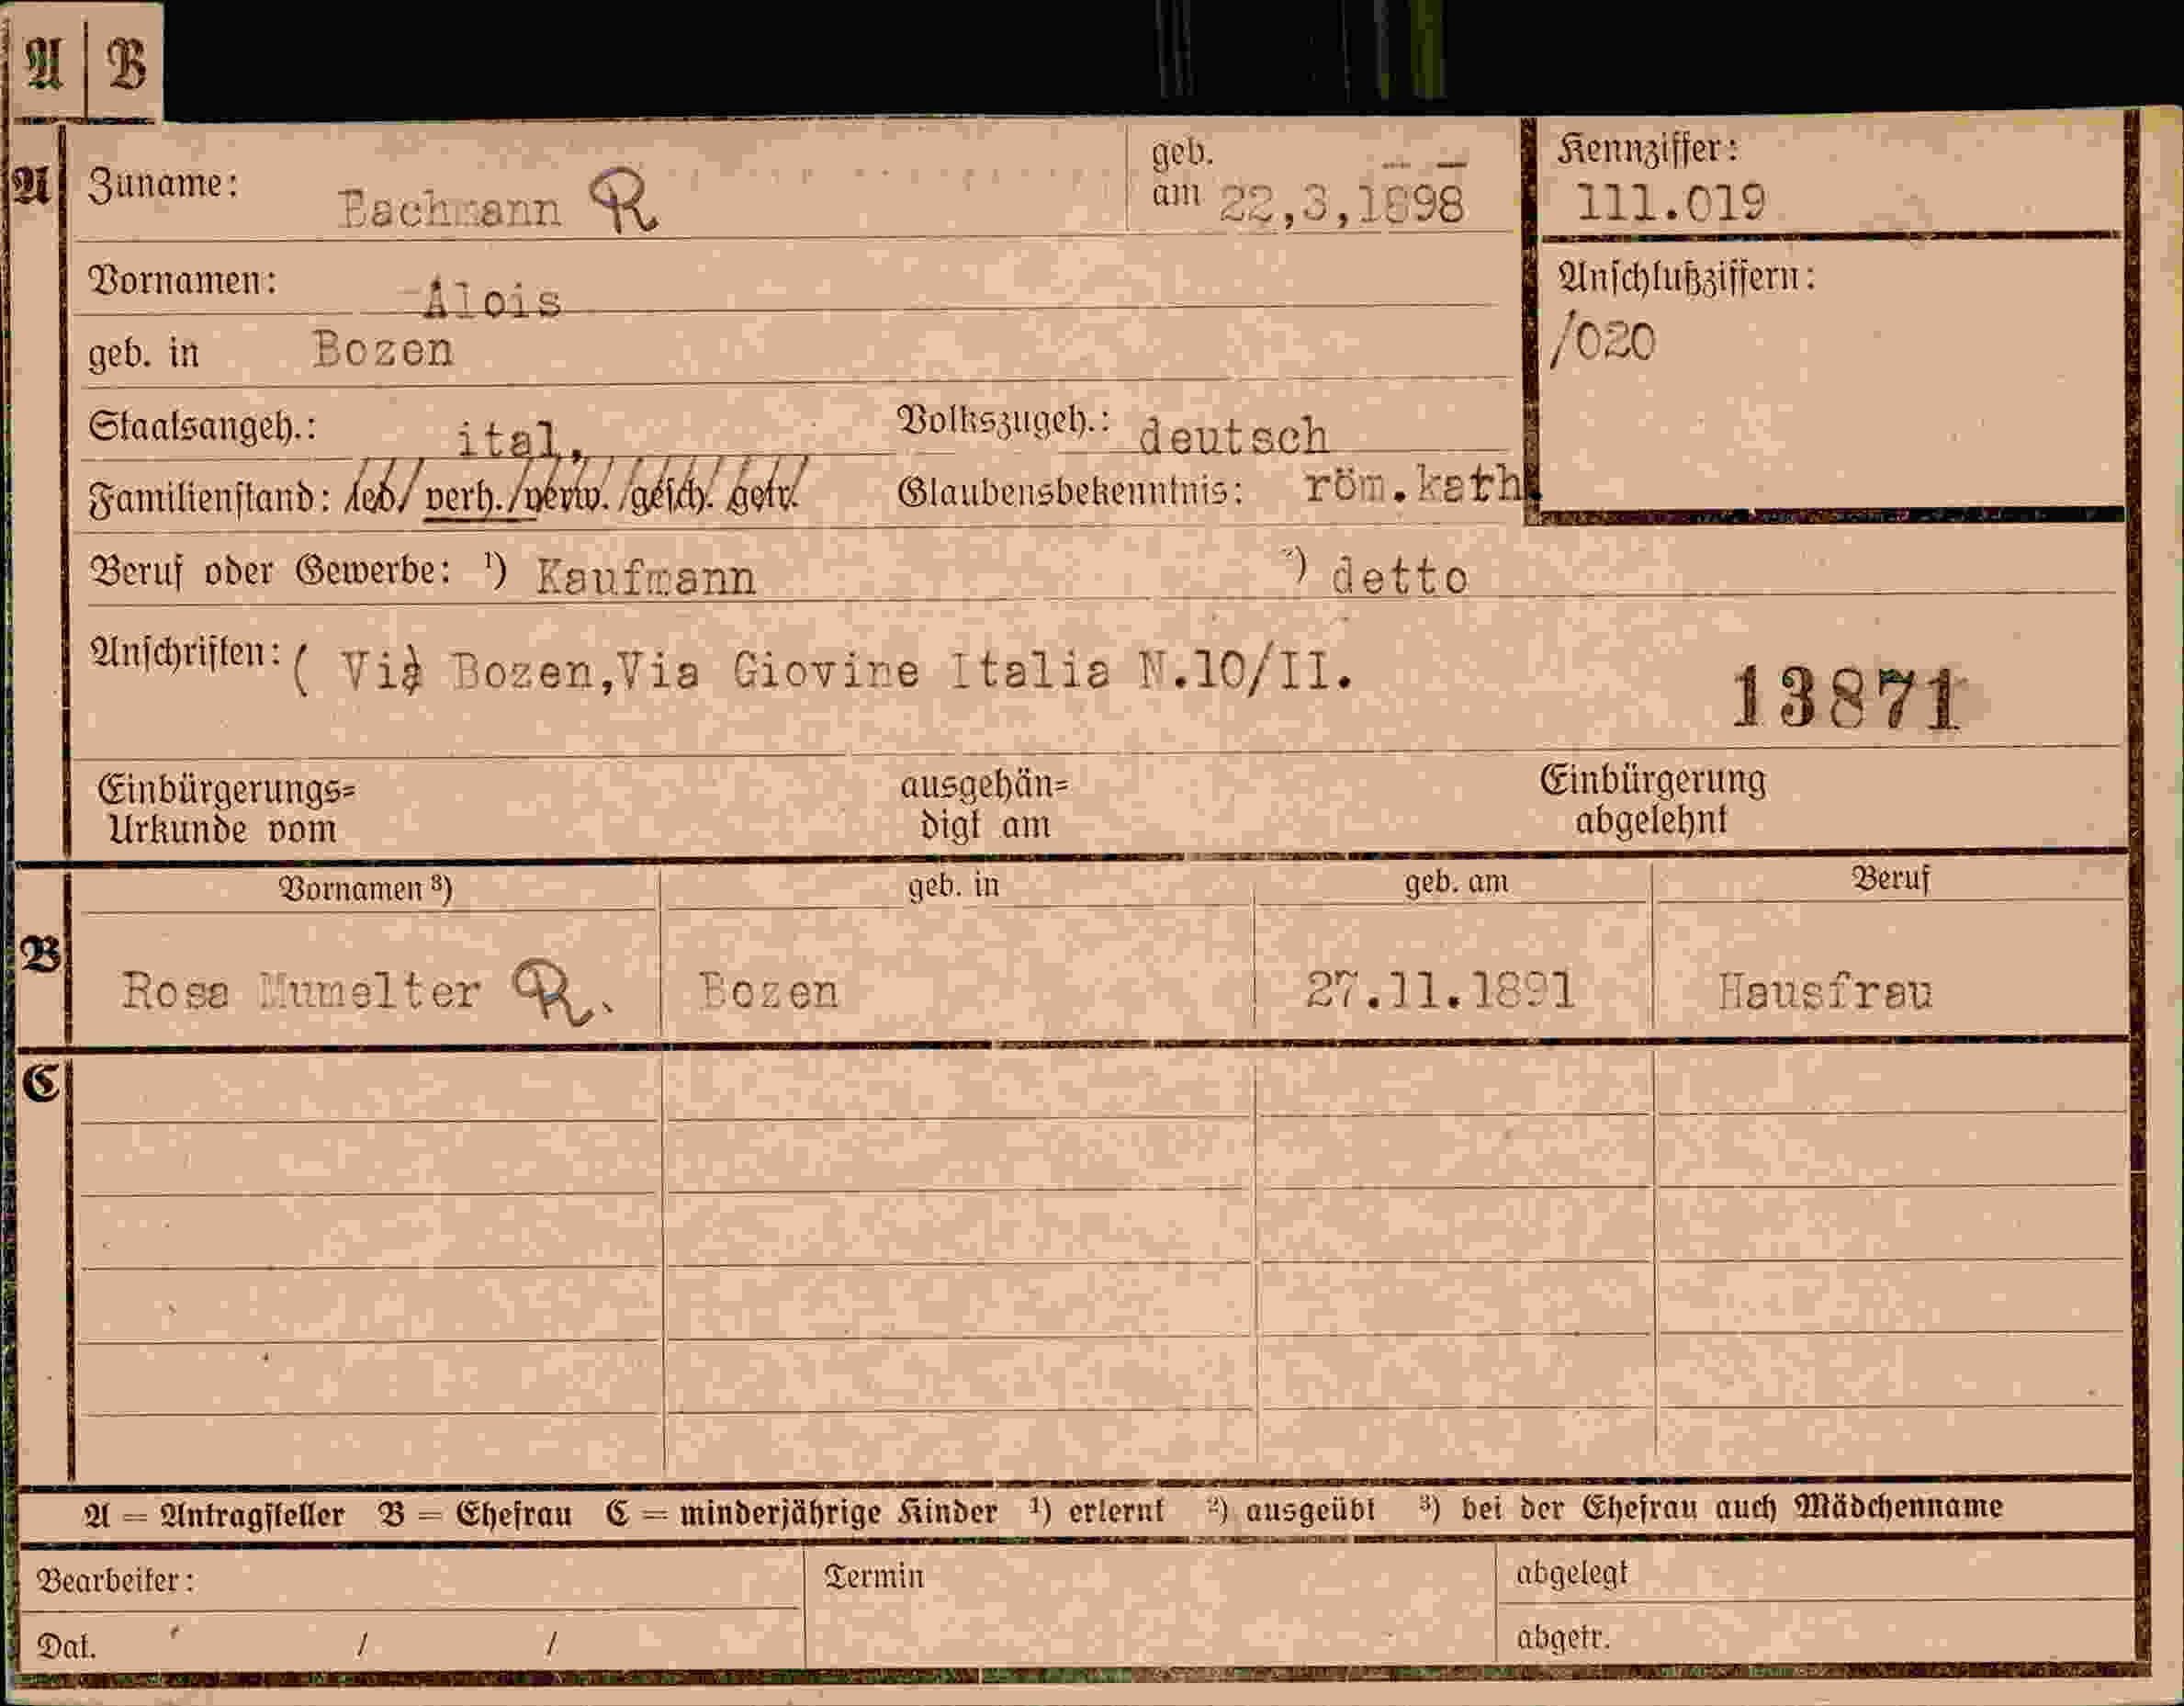 A B
A Zuname: Bachmann R geb. am 22,3,1898 Kennziffer: 111.019
Vornamen: Alois
Anschlußziffern: /020
geb. in Bozen
Staatsangeh.: ital, Volkszugeh.: deutsch
Familienstand: led/ verh./verw. /gesch. getr. Glaubensbekenntnis: röm.kath.
Beruf oder Gewerbe: ¹) Kaufmann ²) detto
Anschriften: ( Via Bozen,Via Giovine Italia N.10/II.
13871
Einbürgerungs=
Urkunde vom
ausgehän=
digt am
Einbürgerung
abgelehnt
Vornamen ³) geb. in geb. am Beruf
B Rosa Mumelter R. Bozen 27.11.1891 Hausfrau
C
A = Antragsteller B = Ehefrau C = minderjährige Kinder ¹) erlernt ²) ausgeübt ³) bei der Ehefrau auch Mädchenname
Bearbeiter: Termin abgelegt
Dat. / / abgetr.